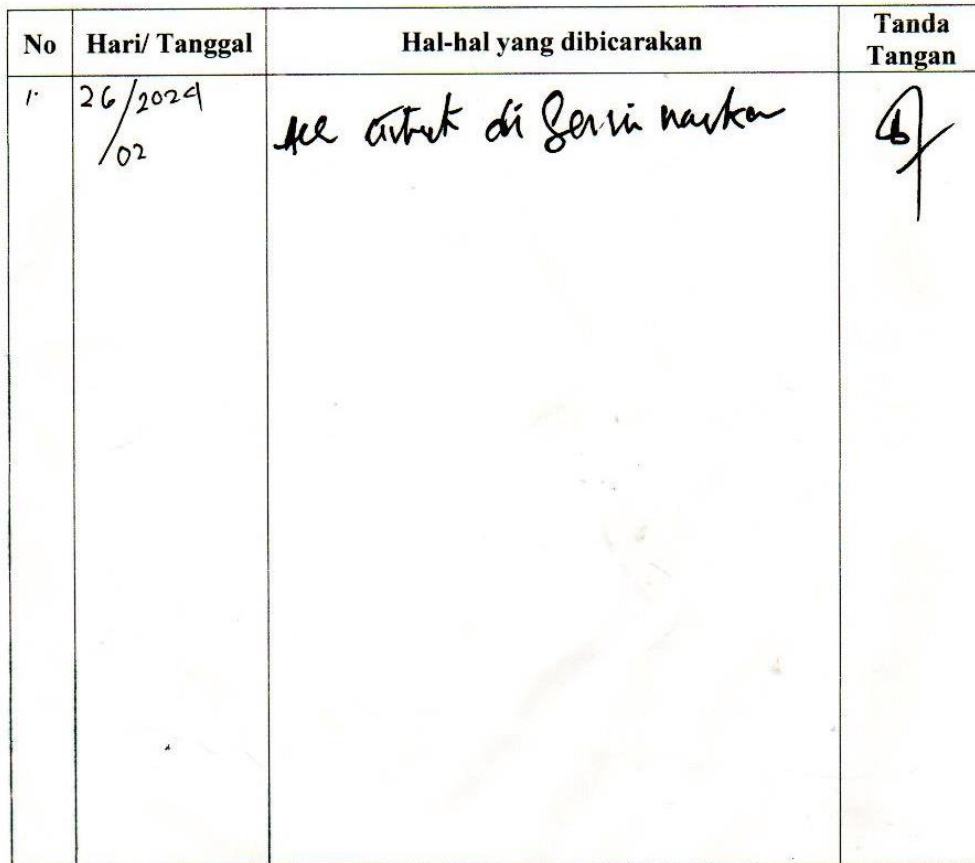 No Hari/ Tanggal Hal-hal yang dibicarakan Tanda Tangan
1. 26/2024 Acc untuk di seminarkan
/02